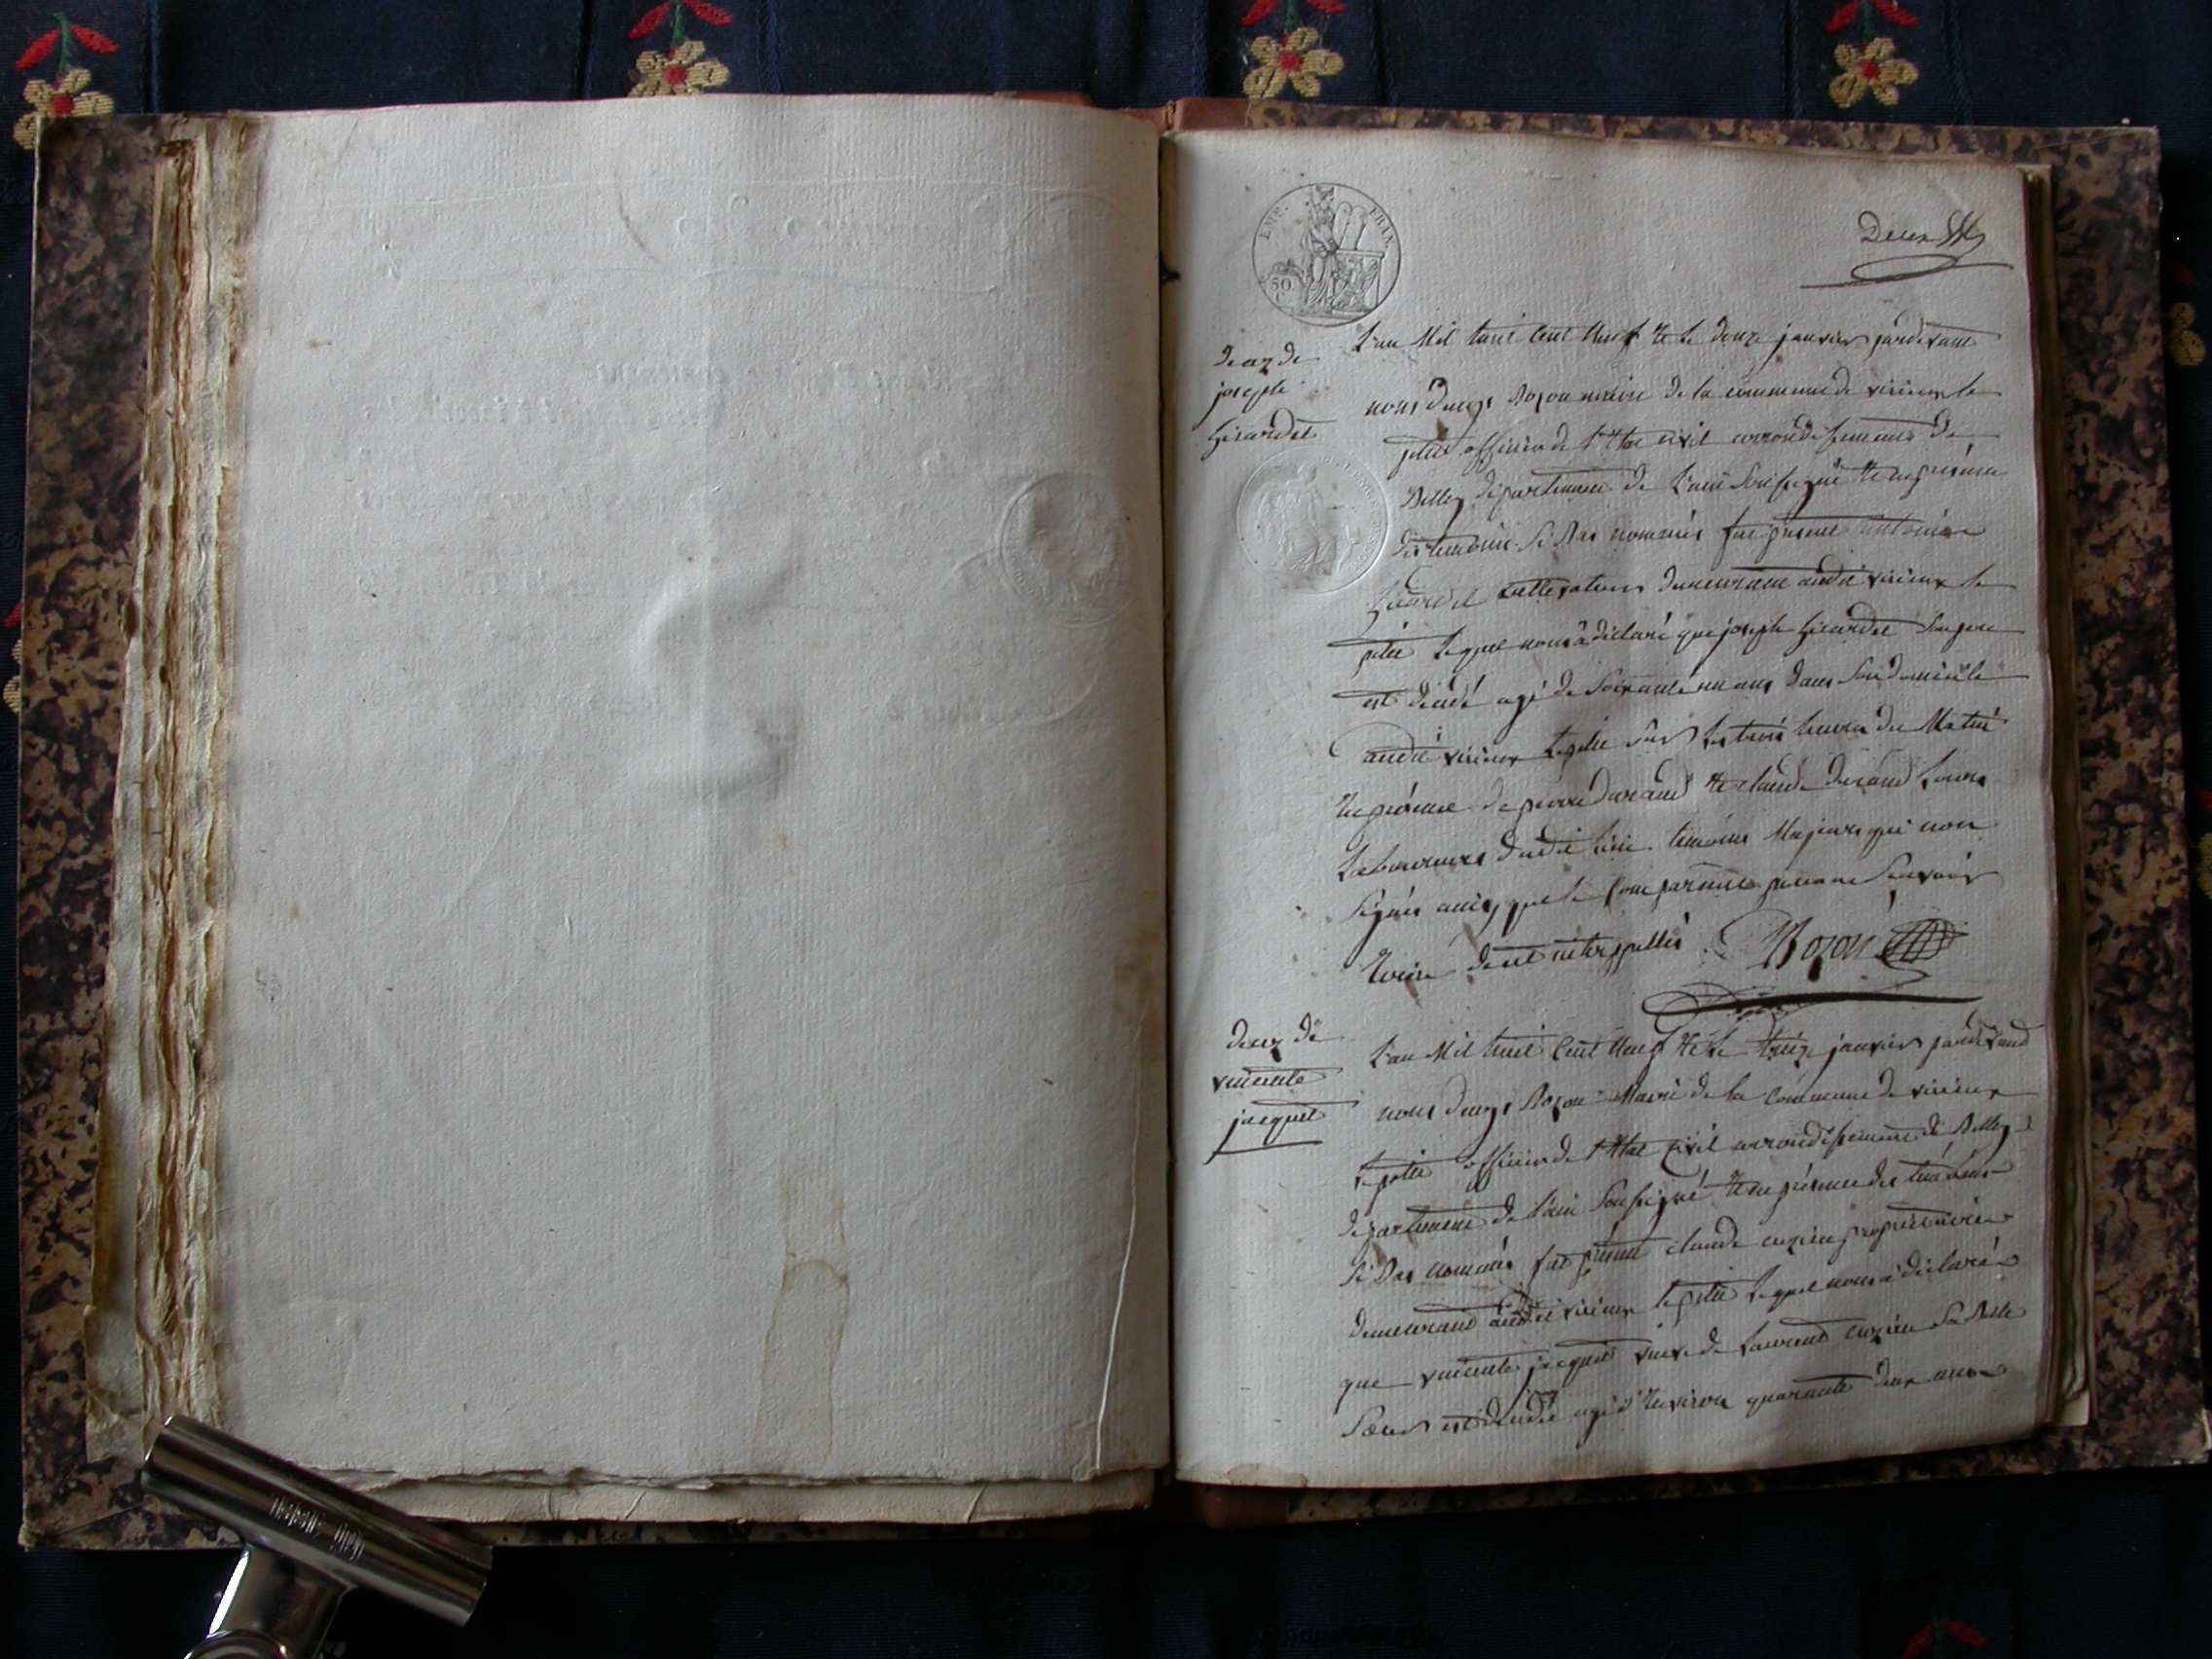 EMP. FRAN.
50
C
Deux
decez de
joseph
Girardet
L'an Mil huit Cent Neuf & le douze janvier pardevant
nous Bozon maire de la commune de virieux le
petit officier de l'Etat civil arrondissement de
Belley département de L'ain soussigné & en présence
des temoins si Bas nommés fut présent antoine
Girardet cultivateur demeurant audit virieux le
petit lequel nous à déclaré que joseph Girardet son pere
est décédé agé de soixante un ans dans son domicile
audit virieux le petit sur les trois heures du Matin
En présence de pierre durand & claude durand tous
Laboureurs dudit lieu temoins Majeurs qui non
signés ainsy que le comparant pour ne sçavoir
Ecrire de ce interpellés Bozon
decez de
vincente
jacquet
L'an Mil huit Cent Neuf & le treize janvier pardevant
nous Bozon Maire de la commune de virieux
le petit officier de l'Etat Civil arrondissement de Belley
département de l'ain soussigné & en présence des temoins
si Bas nommés fut présent claude propriétaire
demeurant audit virieux le petit lequel nous à déclaré
que vincente jacquet veuve de laurent sa Belle
sœur est décédée agée d'Environ quarante deux ans